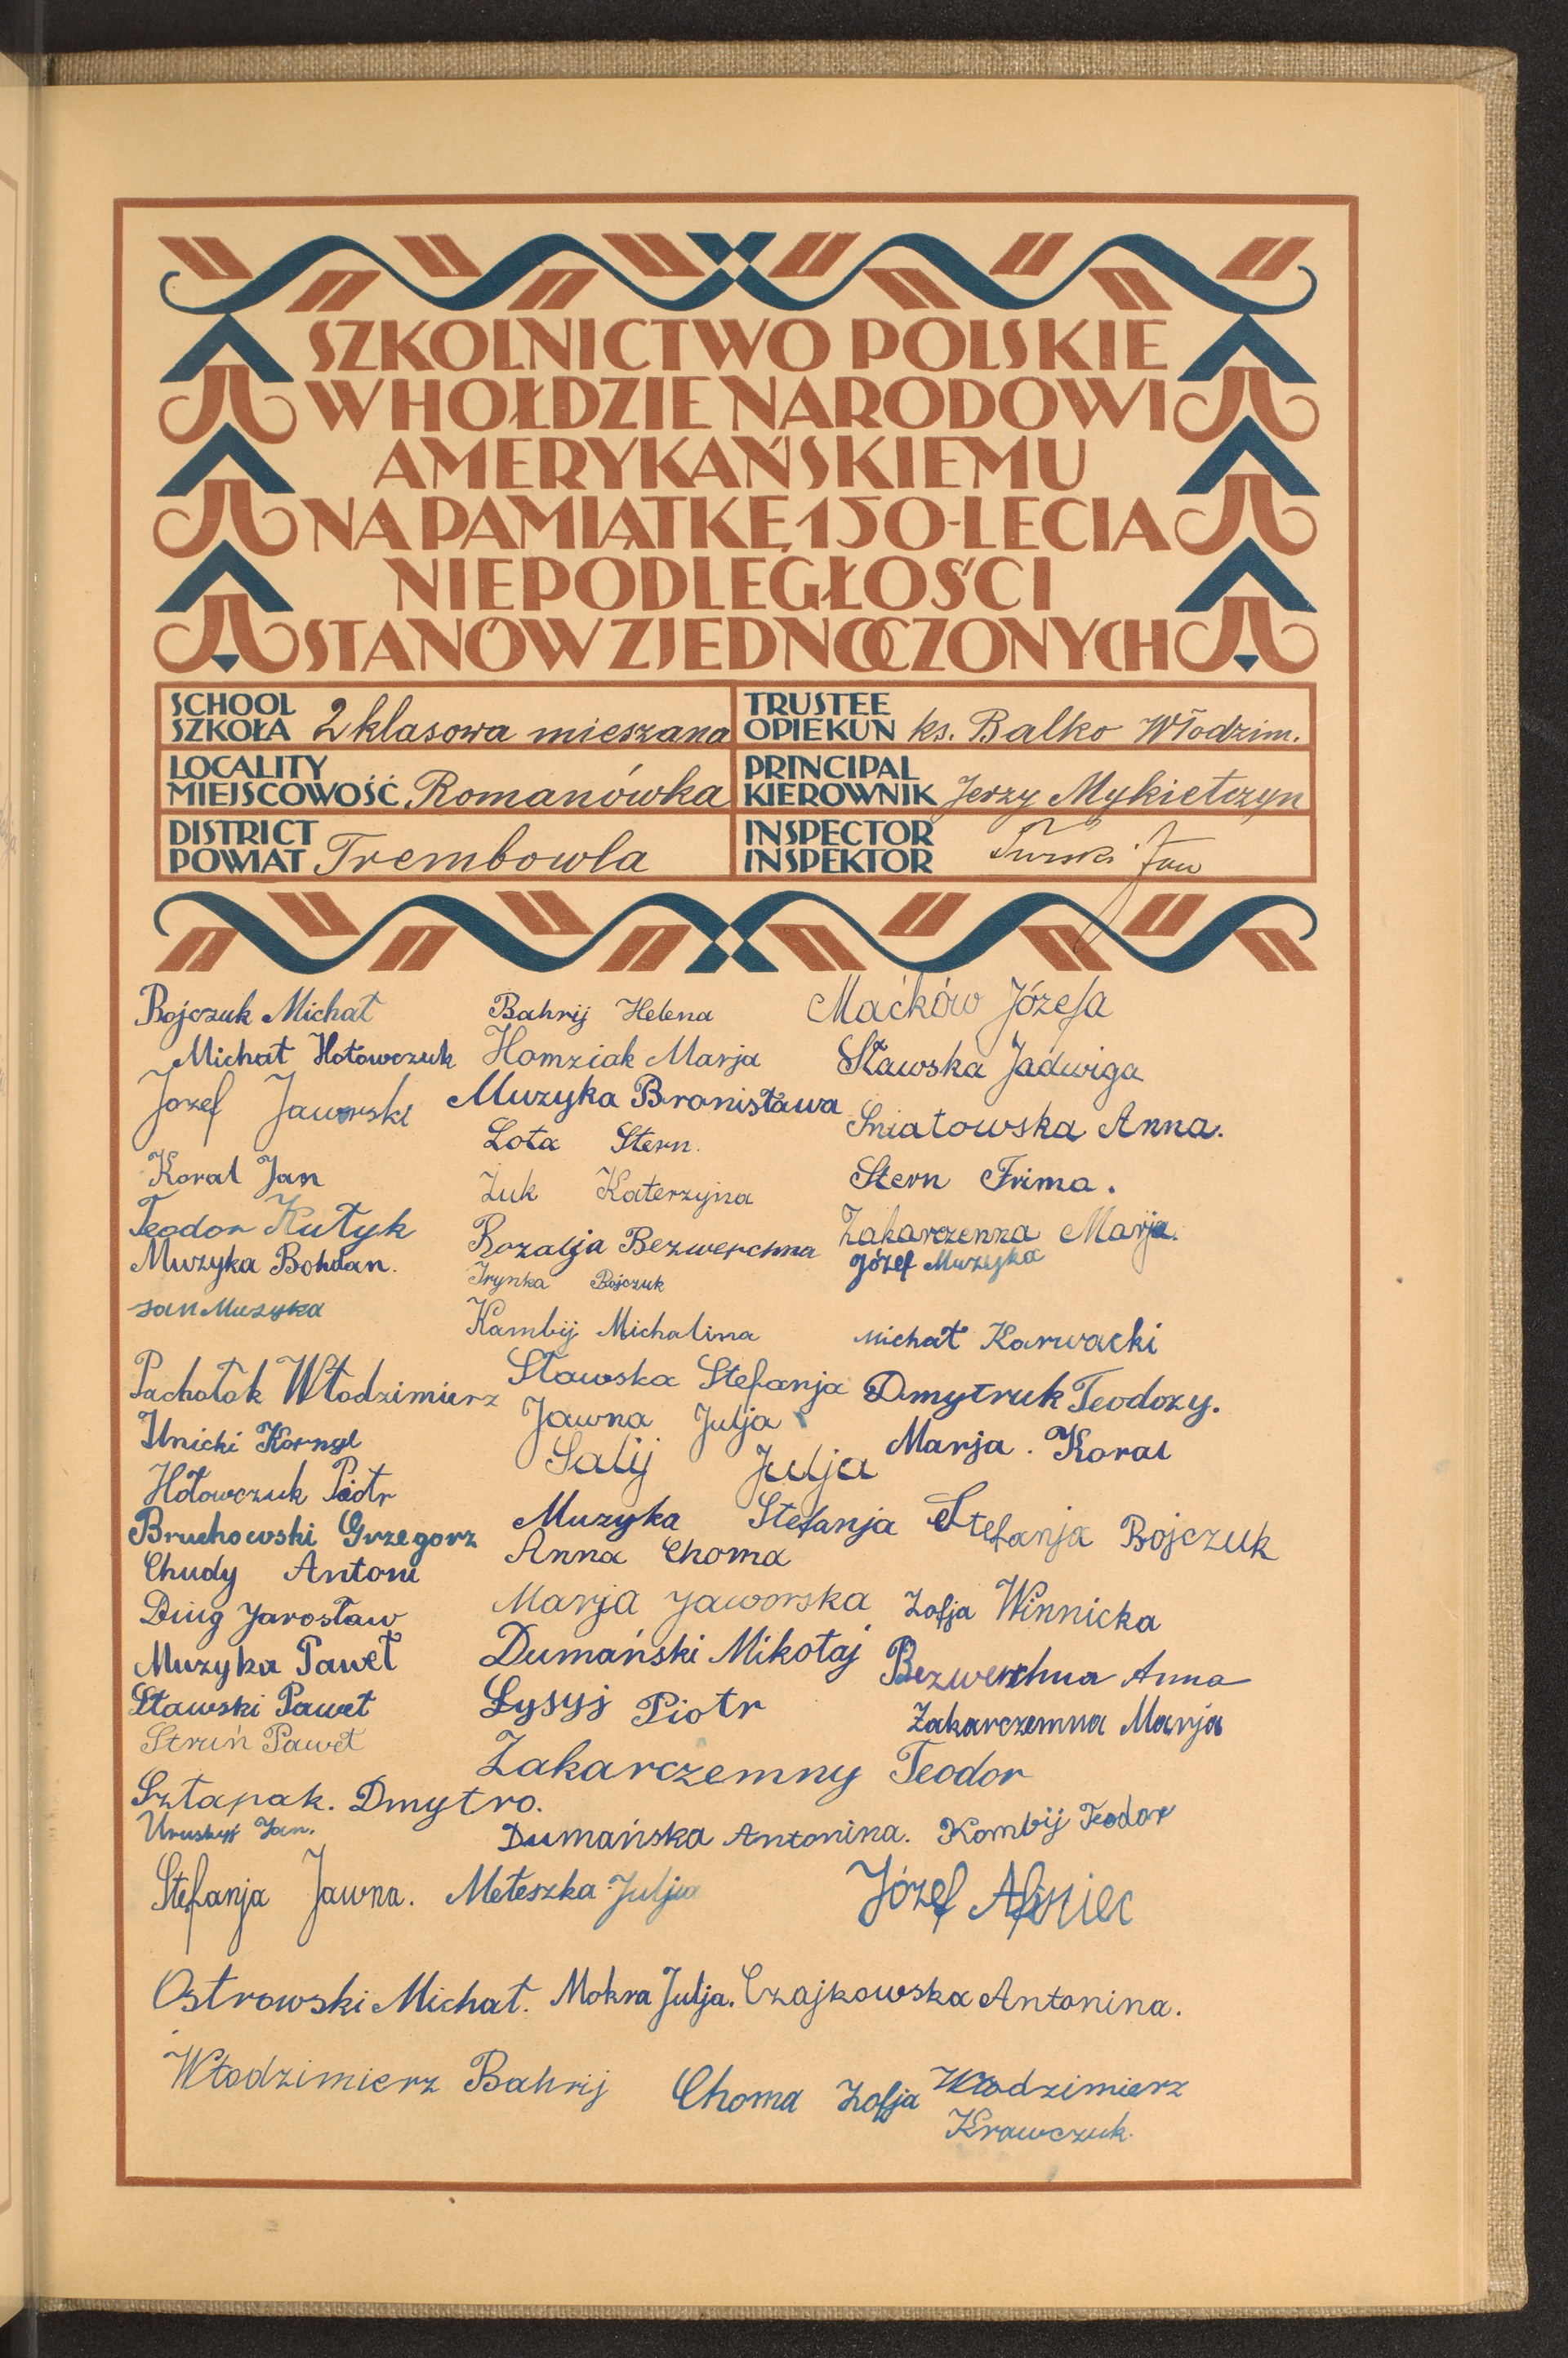 SZKOLNICTWO POLSKIE
W HOŁDZIE NARODOWI
AMERYKAŃSKIEMU
NA PAMIĄTKĘ 150-LECIA
NIEPODLEGŁOŚCI
STANÓW ZJEDNOCZONYCH
SCHOOL
SZKOŁA 2 klasowa mieszana
TRUSTEE
OPIEKUN ks. Balko Włodzim.
LOCALITY
MIEJSCOWOŚĆ Romanówka
PRINCIPAL
KIEROWNIK Jerzy Mykietczyn
DISTRICT
POWIAT Trembowla
INSPECTOR
INSPEKTOR Turski Jan
Bojczuk Michał
Michał Hołowczuk
Jozef Jaworski
Koral Jan
Teodor Kutyk
Muzyka Bohdan.
Jan Muzyka
Pachołok Włodzimierz
Unicki Kornyl
Hołowczuk Piotr
Bruchowski Grzegorz
Chudy Antoni
Diug Jarosław
Muzyka Paweł
Sławski Paweł
Struń Paweł
Sztapak. Dmytro.
Uruskyj Jan.
Stefanja Jawna.
Bahrij Helena
Homziak Marja
Muzyka Bronisława
Lota Stern.
Żuk Katerzyna
Rozalja Bezwerchna
Irynka Bojczuk
Kambij Michalina
Sławska Stefanja
Jawna Julja
Salij Julja
Muzyka Stefanja
Anna Choma
Marja Jaworska
Dumański Mikołaj
Łysyj Piotr
Zakarczemny Teodor
Dumańska Antonina.
Meteszka Julja
Maćków Józefa
Sławska Jadwiga
Śniatowska Anna.
Stern Frima.
Zakarczenna Marja.
Józef Muzyka
Michał Karwacki
Dmytruk Teodozy.
Marja. Koral
Stefanja Bojczuk
Zofja Winnicka
Bezwerchna Anna
Zakarczemna Marja
Kombij Teodor
Józef
Ostrowski Michał. Mokra Julja. Czajkowska Antonina.
Włodzimierz Bahrij Choma Zofja Włodzimierz
Krawczuk.